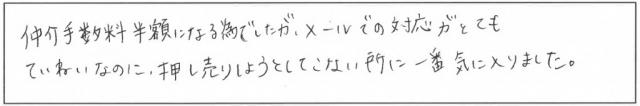 仲介手数料半額になる為でしたが、メールでの対応がとても
ていねいなのに、押し売りしようとしてこない所に一番気に入りました。